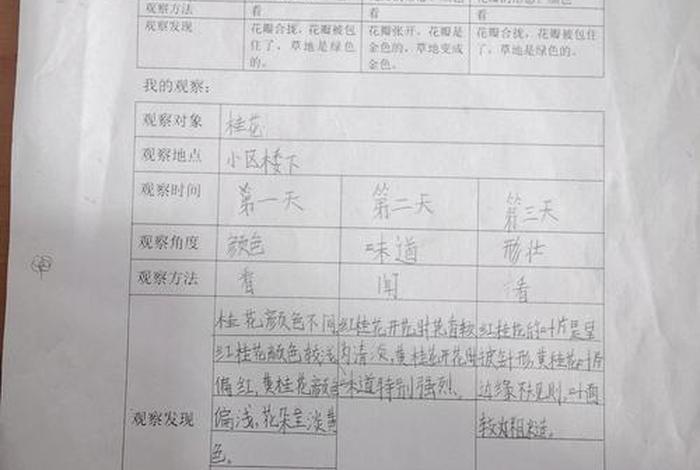 观察方法 看 看 看
观察发现 花瓣合拢，花瓣被包 花瓣张开，花瓣是 花瓣合拢，花瓣被包
住了，草地是绿色 金色的，草地变成 住了，草地是绿色
的。 金色。 的。
我的观察：
观察对象 桂花
观察地点 小区楼下
观察时间 第一天 第二天 第三天
观察角度 颜色 味道 形壮
观察方法 看 闻 看
观察发现
桂花颜色不同
红桂花颜色较浅
偏红,黄桂花颜色
偏浅,花朵呈淡黄
色。
红桂花开花时花香较
为清淡,黄桂花开花时
味道特别强烈、
红桂花的叶片是呈
披针形,黄桂花叶片
边缘不见则,叶面
较为粗糙。